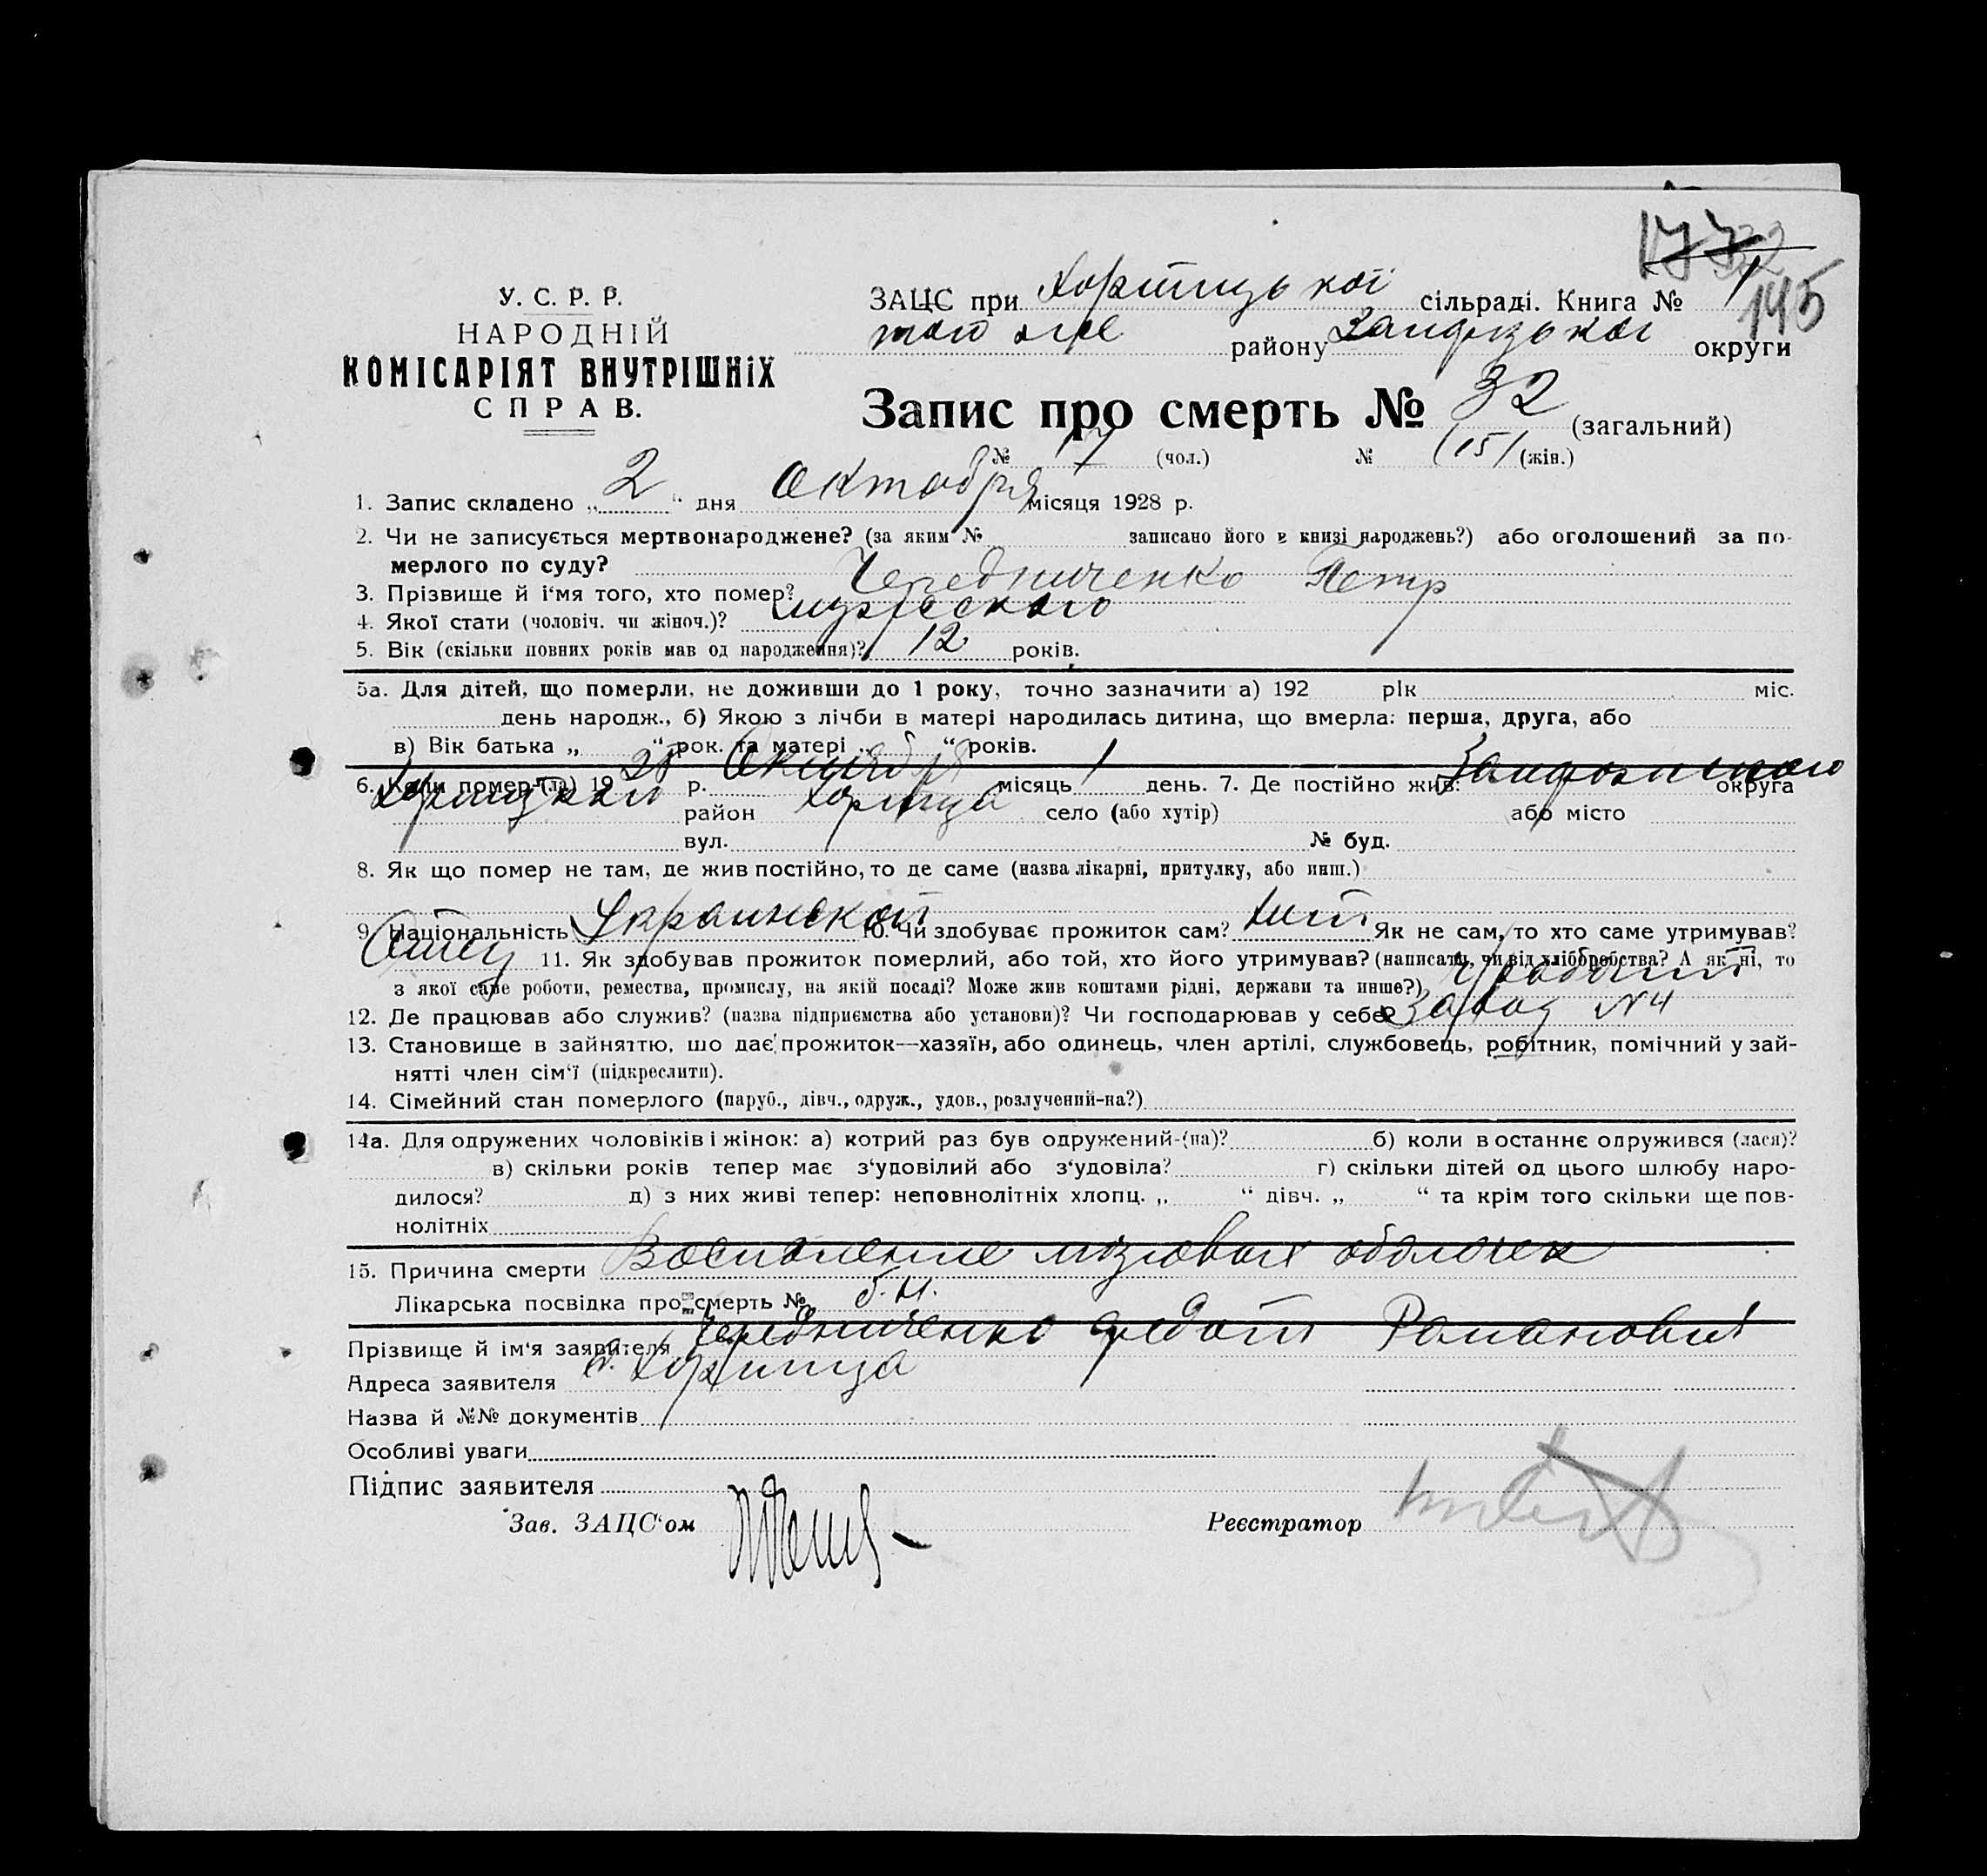 177 32
145
У. С. Р. Р.
НАРОДНІЙ
КОМІСАРІЯТ ВНУТРІШНІХ
СПРАВ.
ЗАЦС при Хортицької сільраді. Книга № 1
того же району Запорізької округи
Запис про смерть № 32 (загальний)
№ 17 (чол.) № (15) (жін.)
1. Запис складено „ 2 “ дня Октября місяця 1928 р.
2. Чи не записується мертвонароджене? (за яким № записано його в книзі народжень?) або оголошений за по-
мерлого по суду?
3. Прізвище й і‘мя того, хто помер? Чередниченко Петр
4. Якої стати (чоловіч. чи жіноч.)? мужеского
5. Вік (скільки повних років мав од народження)? 12 років.
5а. Для дітей, що померли, не доживши до 1 року, точно зазначити а) 192 рік міс.
день народж., б) Якою з лічби в матері народилась дитина, що вмерла: перша, друга, або
в) Вік батька „ “ рок. та матері „ “ років.
6. Коли помер-(ла) 1928 р. Октября місяць 1 день. 7. Де постійно жив: Запорожского округа
Хортицкого район Хортица село (або хутір) або місто
вул. № буд.
8. Як що помер не там, де жив постійно, то де саме (назва лікарні, притулку, або инш.)
9. Національність Украинской 10. Чи здобуває прожиток сам? Як не сам, то хто саме утримував?
Отец 11. Як здобував прожиток померлий, або той, хто його утримував? (написати, чи від хліборобства? А як ні, то
з якої саме роботи, ремества, промислу, на якій посаді? Може жив коштами рідні, держави та инше?)
12. Де працював або служив? (назва підприємства або установи)? Чи господарював у себе? Завод N 4
13. Становище в зайняттю, шо дає прожиток—хазяїн, або одинець, член артілі, службовець, робітник, помічний у зай-
нятті член сім‘ї (підкреслити).
14. Сімейний стан померлого (паруб., дівч., одруж., удов., розлучений-на?)
14а. Для одружених чоловіків і жінок: а) котрий раз був одружений-(на)? б) коли востаннє одружився (лася)?
в) скільки років тепер має з‘удовілий або з‘удовіла? г) скільки дітей од цього шлюбу наро-
дилося? д) з них живі тепер: неповнолітніх хлопц. „ “ дівч. „ “ та крім того скільки ще пов-
нолітніх
15. Причина смерти Воспаление мозговых оболочек
Лікарська посвідка про смерть № б.н.
Прізвище й ім‘я заявителя Чередниченко Федот Романович
Адреса заявителя с. Хортица
Назва й №№ документів
Особливі уваги
Підпис заявителя
Зав. ЗАЦС‘ом Реєстратор